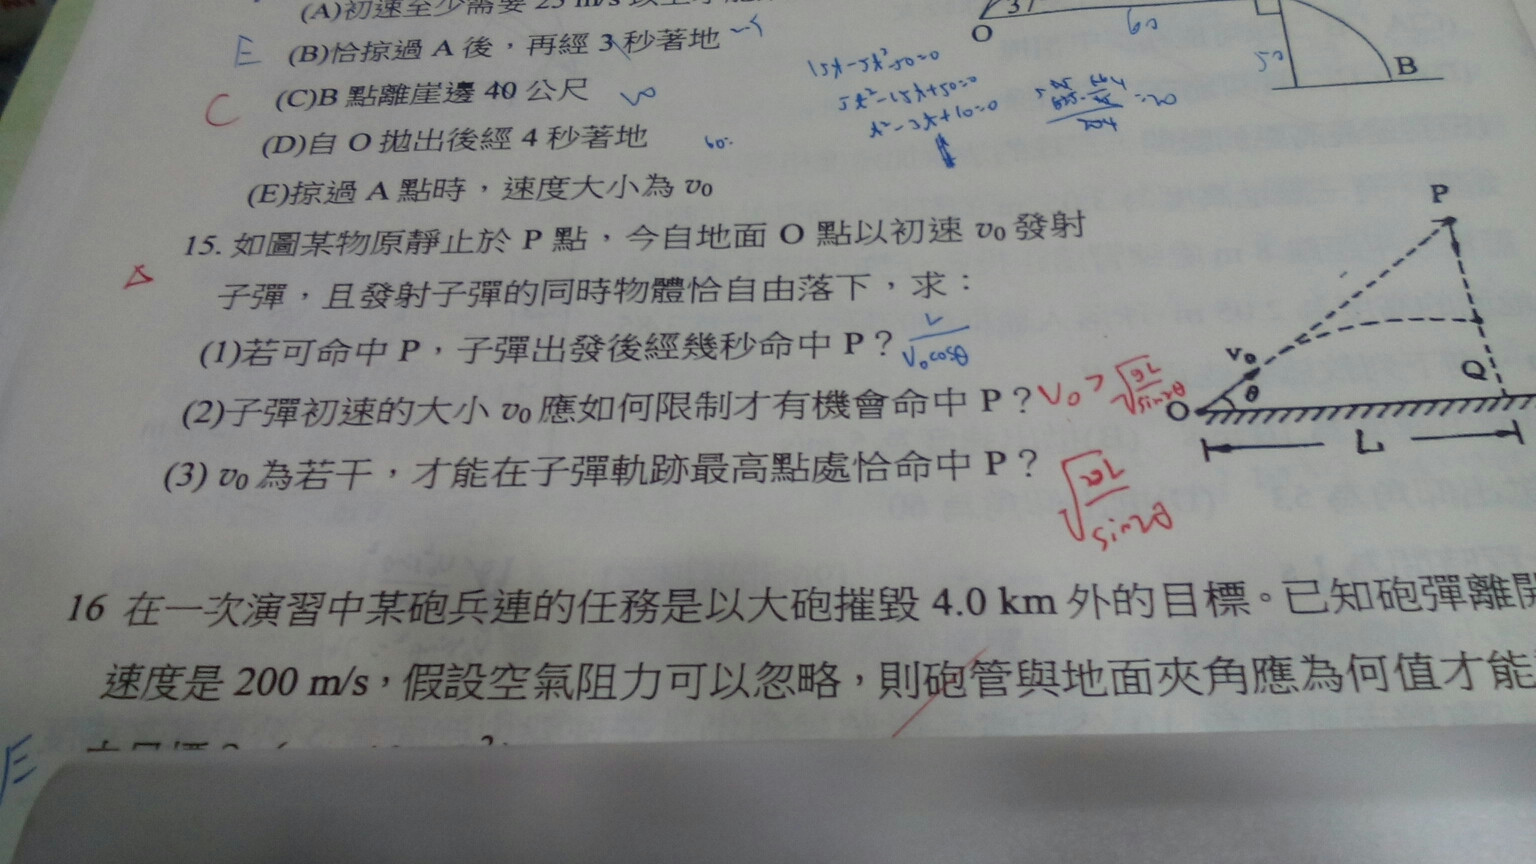 (A)初速至少需要 25 m/s 以上才能
E (B)恰掠過 A 後，再經 3 秒著地
C (C)B 點離崖邊 40 公尺
(D)自 O 拋出後經 4 秒著地 60
(E)掠過 A 點時，速度大小為 v₀
O 60 50 B
15t-5t²-50=0
5t²-15t+50=0
t²-3t+10=0
=20
△ 15. 如圖某物原靜止於 P 點，今自地面 O 點以初速 v₀ 發射
子彈，且發射子彈的同時物體恰自由落下，求：
(1)若可命中 P，子彈出發後經幾秒命中 P？ L/V₀cosθ
(2)子彈初速的大小 v₀ 應如何限制才有機會命中 P？ V₀ > √(gL/sin2θ)
(3) v₀ 為若干，才能在子彈軌跡最高點處恰命中 P？ √(2gL/sin2θ)
P
v₀
θ
O
Q
L
16 在一次演習中某砲兵連的任務是以大砲摧毀 4.0 km 外的目標。已知砲彈離開
速度是 200 m/s，假設空氣阻力可以忽略，則砲管與地面夾角應為何值才能
E